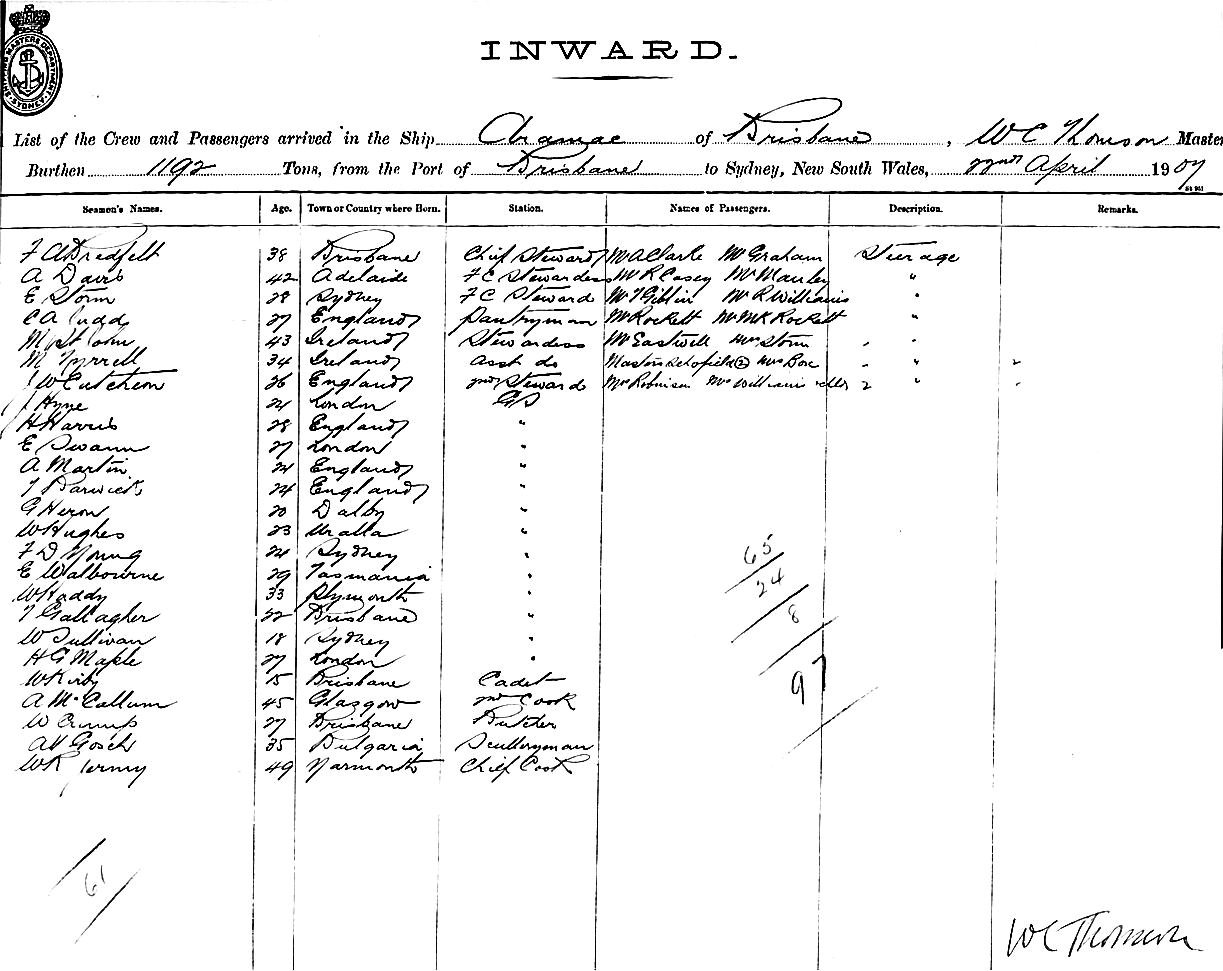 SHIPPING MASTERS DEPARTMENT SYDNEY
INWARD.
List of the Crew and Passengers arrived in the Ship Aramac of Brisbane, W C Thomson Master
Burthen 1192 Tons, from the Port of Brisbane to Sydney, New South Wales, 22nd April 1907
Seamen's Names. Age. Town or Country where Born. Station. Names of Passengers. Description. Remarks.
F A Bredfelt 38 Brisbane Chief Steward Mr A Clarke Mr Graham Steerage
A Davis 42 Adelaide F C Stewardess Mr R Casey Mr Manley "
E Storm 28 Sydney F C Steward Mr T Giblin Mr R Williams "
C A Judd 27 England Pantryman Mr Rockett Mr Rockett "
M St John 43 Ireland Stewardess Mr Eastwell Mrs Storm " "
M Tyrrell 34 Ireland Asst do Masters Schofield (2) Mrs Boe " " "
J W Cutcheon 26 England 2nd Steward Mrs Robinson Mrs Williams 2 " "
J Hyne 21 London GS
H Harris 28 England "
E Swann 27 London "
A Martin 21 England "
T Barwick 24 England "
G Heron 20 Dalby "
W Hughes 23 Uralla "
F D Young 21 Sydney "
E Walbourne 29 Tasmania "
W Haddy 33 Plymouth "
T Gallagher 22 Brisbane "
W Sullivan 18 Sydney "
H G Maple 27 London "
W Kirby 15 Brisbane Cadet
A McCallum 45 Glasgow 2nd Cook
W Crump 27 Brisbane Butcher
A H Gosch 35 Bulgaria Sculleryman
W R 49 Yarmouth Chief Cook
65
24
8
97
61
W C Thomson